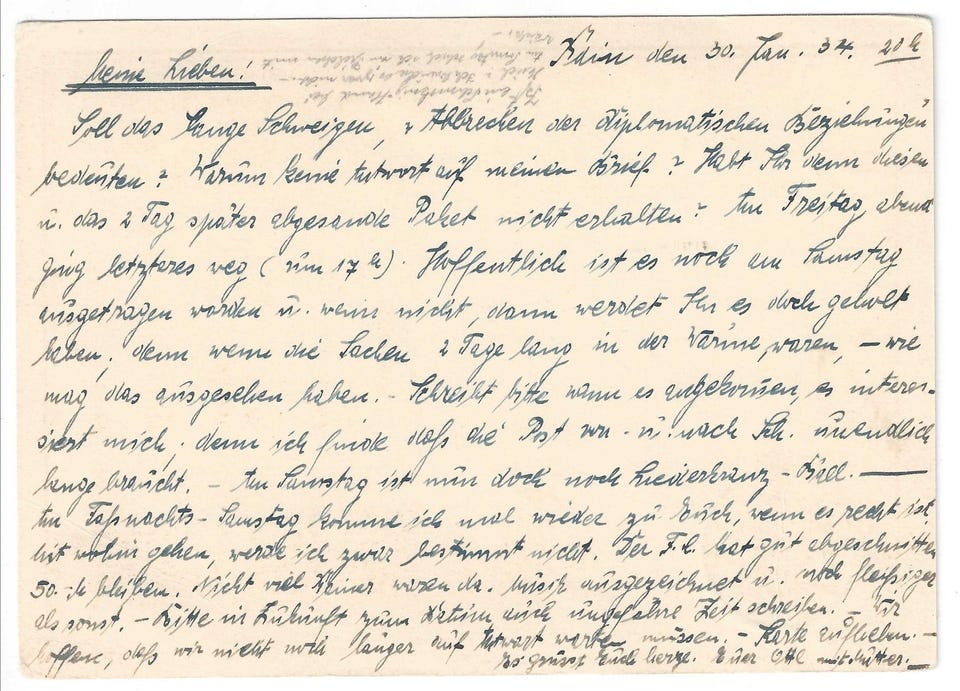 Rain den 30. Jan. 34. 20 h
Meine Lieben!
Soll das lange Schweigen, Abbrechen der diplomatischen Beziehungen
bedeuten? Warum keine Antwort auf meinen Brief? Habt Ihr denn diesen
u. das 2 Tag später abgesande Paket nicht erhalten? Am Freitag abend
ging letzteres weg (um 17 h). Hoffentlich ist es noch am Samstag
ausgetragen worden u. wenn nicht, dann werdet Ihr es doch geholt
haben, denn wenn die Sachen 2 Tage lang in der Wärme waren, – wie
mag das ausgesehen haben. – Schreibt bitte wann es angekommen, es interes-
siert mich, denn ich finde daß die Post von - u. nach Sch. unendlich
lange braucht. – Am Samstag ist nun doch noch Liederkranz - Ball. —
Am Faßnachts - Samstag komme ich mal wieder zu Euch, wenn es recht ist,
mit wohin gehen, werde ich zwar bestimmt nicht. Der F.L. hat gut abgeschnitten
50.-M bleiben. Nicht viel waren da. Musik ausgezeichnet u. noch fleißiger
als sonst. – Bitte in Zukunft zum Datum auch ungefähre Zeit schreiben. – Wir
hoffen, daß wir nicht noch länger auf Antwort warten müssen. – Karte aufheben. –
Es grüsst Euch herzl. Euer Otto mit Mutter. –